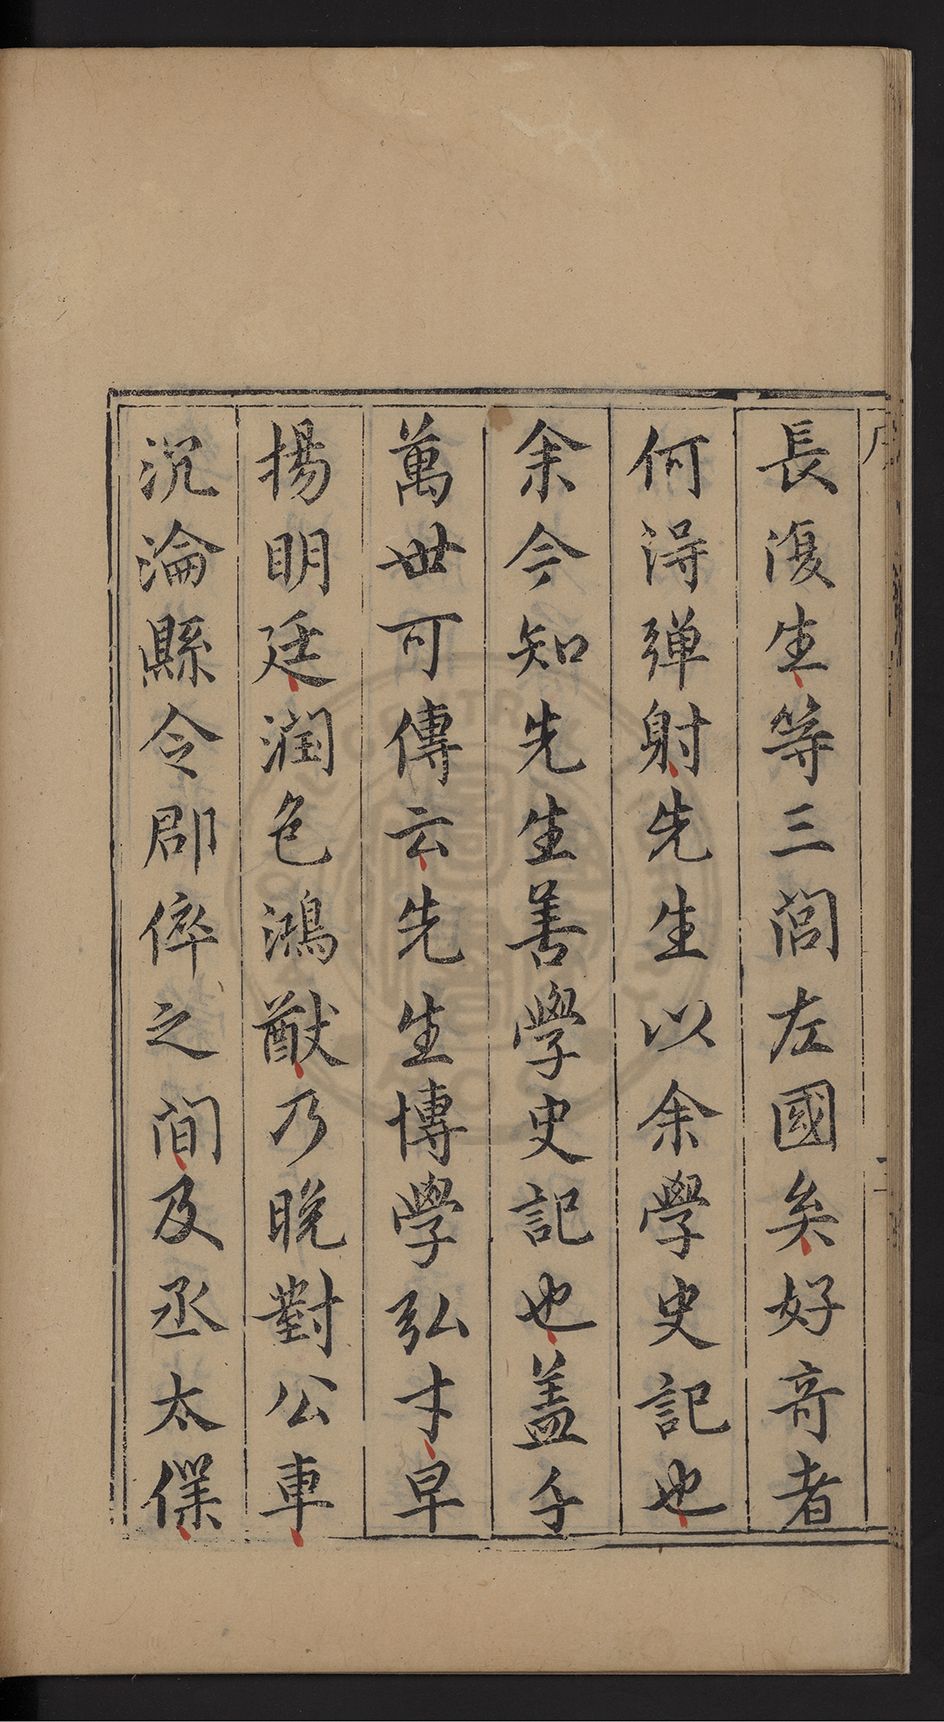 長復生等三閭左國矣好奇者
何得彈射先生以余學史記也
余今知先生善學史記也盖乎
萬世可傳云先生博學弘才早
揚明廷润色鴻猷乃晚對公車
沉淪縣令郡倅之间及丞太僕